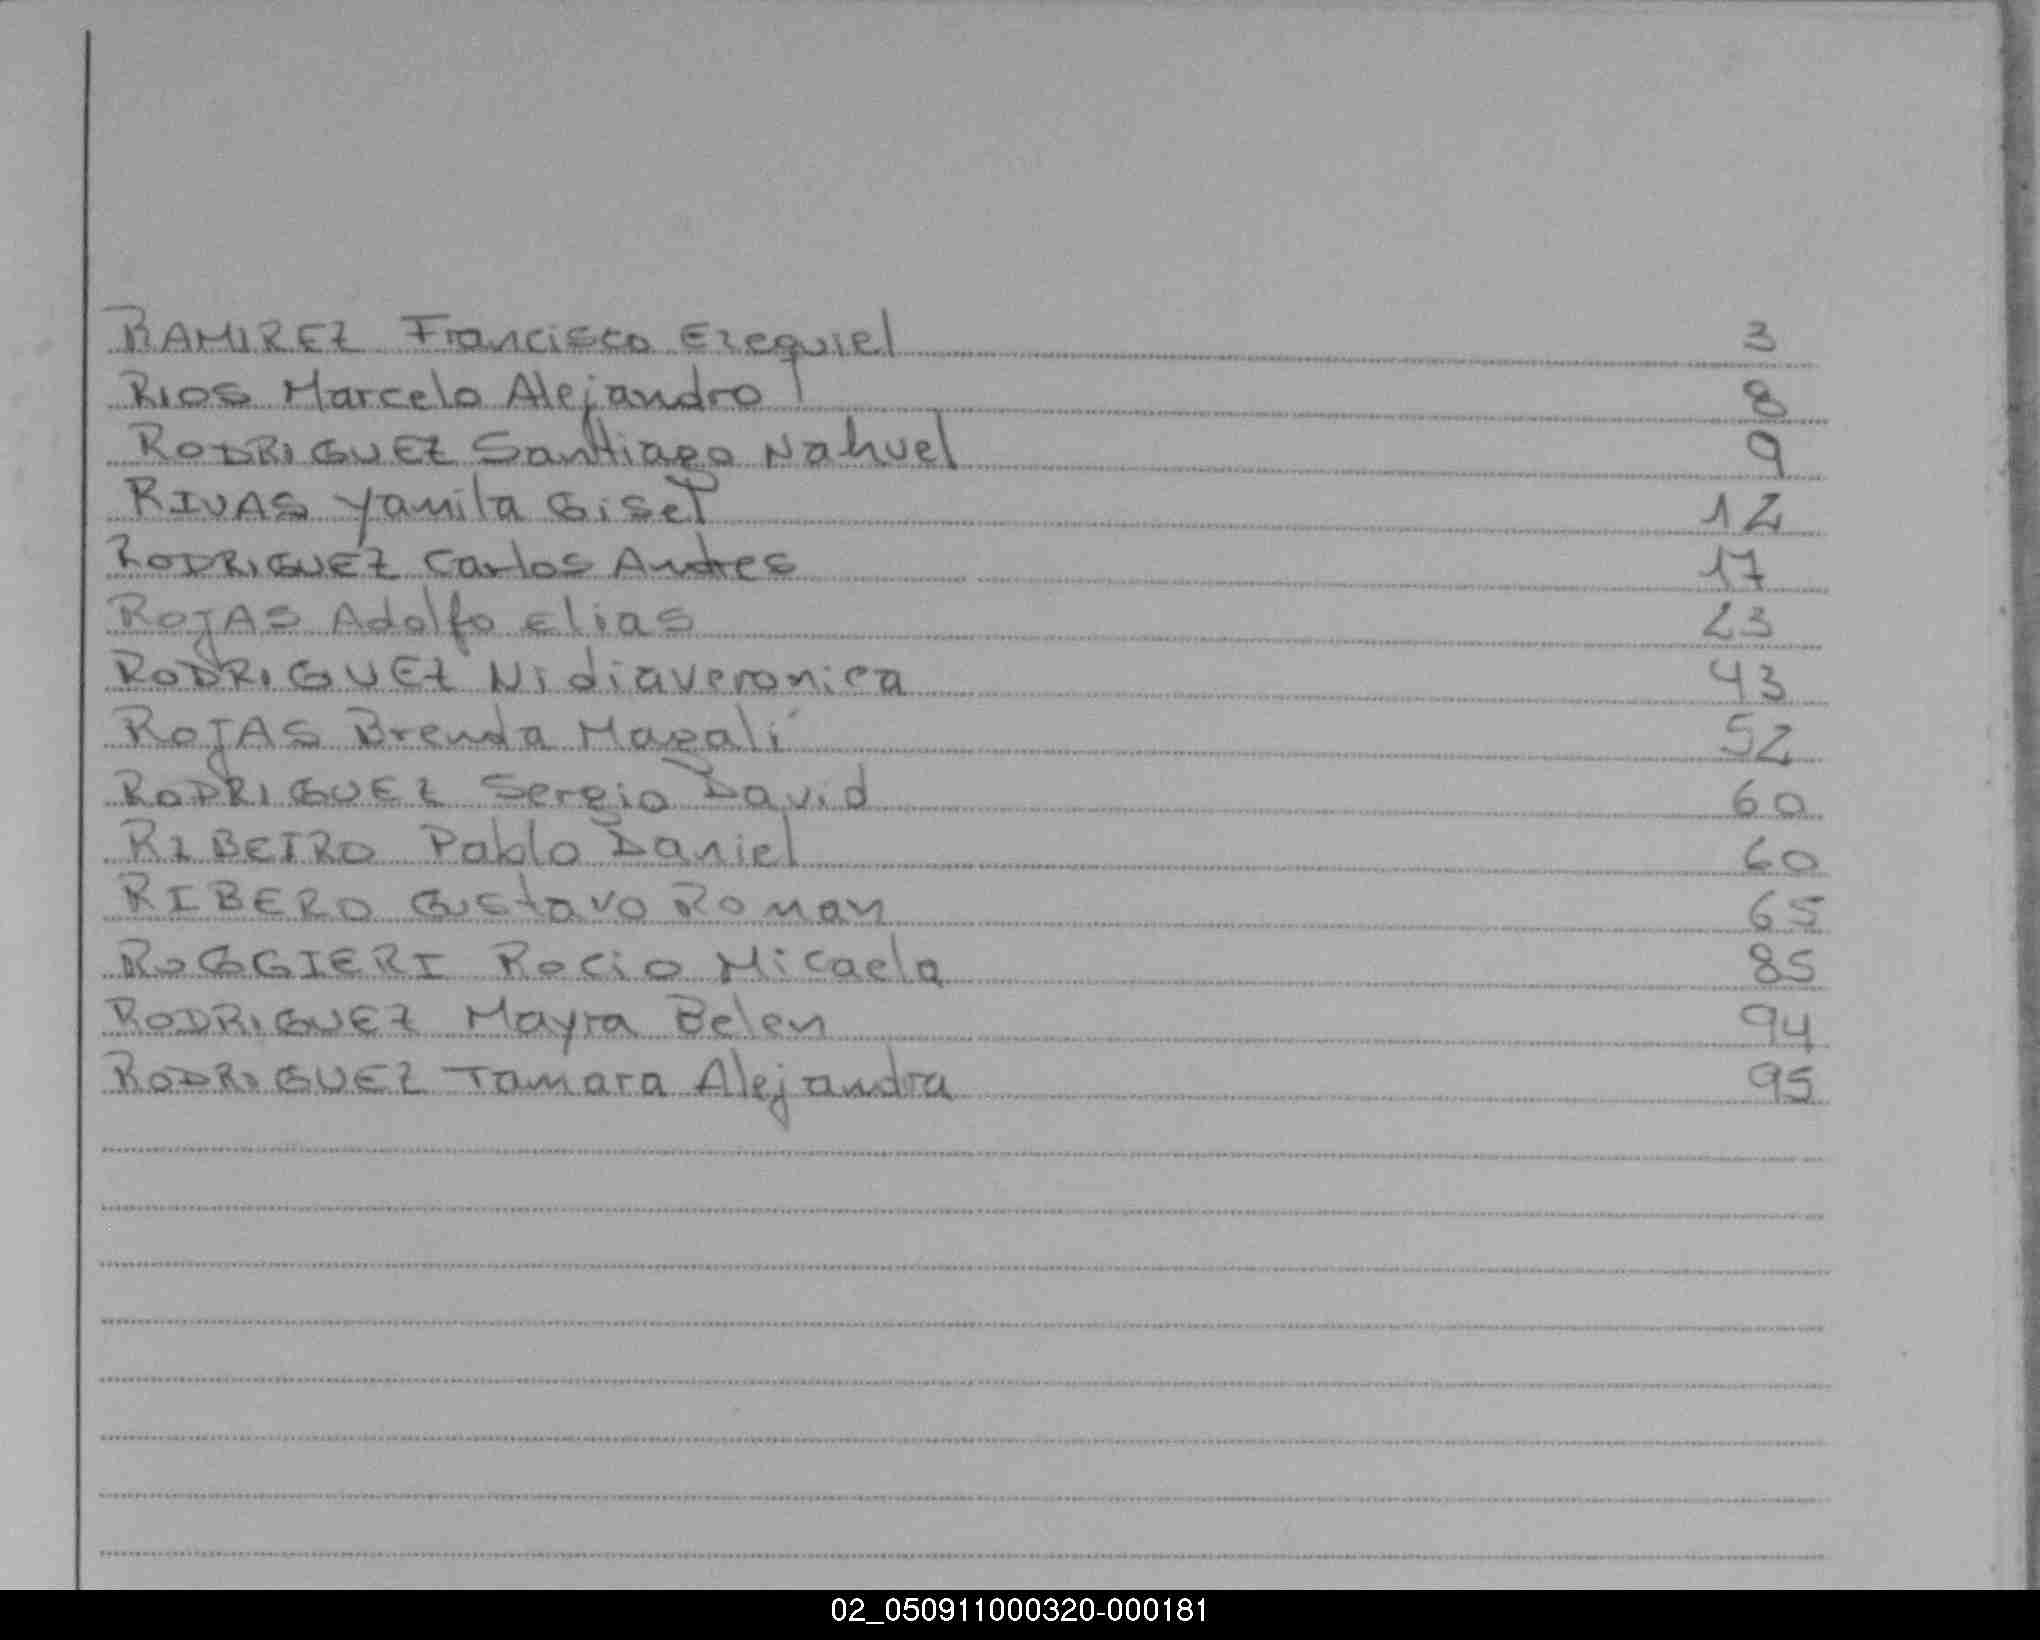 RAMIREZ Francisco Ezequiel 3
RIOS Marcelo Alejandro 8
RODRIGUEZ Santiago Nahuel 9
RIVAS Yamila Gisel 12
RODRIGUEZ Carlos Andres 17
ROJAS Adolfo Elias 23
RODRIGUEZ Nidiaveronica 43
ROJAS Brenda Magalí 52
RODRIGUEZ Sergio David 60
RIBEIRO Pablo Daniel 60
RIBERO Gustavo Roman 65
ROGGIERI Rocio Micaela 85
RODRIGUEZ Mayra Belen 94
RODRIGUEZ Tamara Alejandra 95
02_050911000320-000181